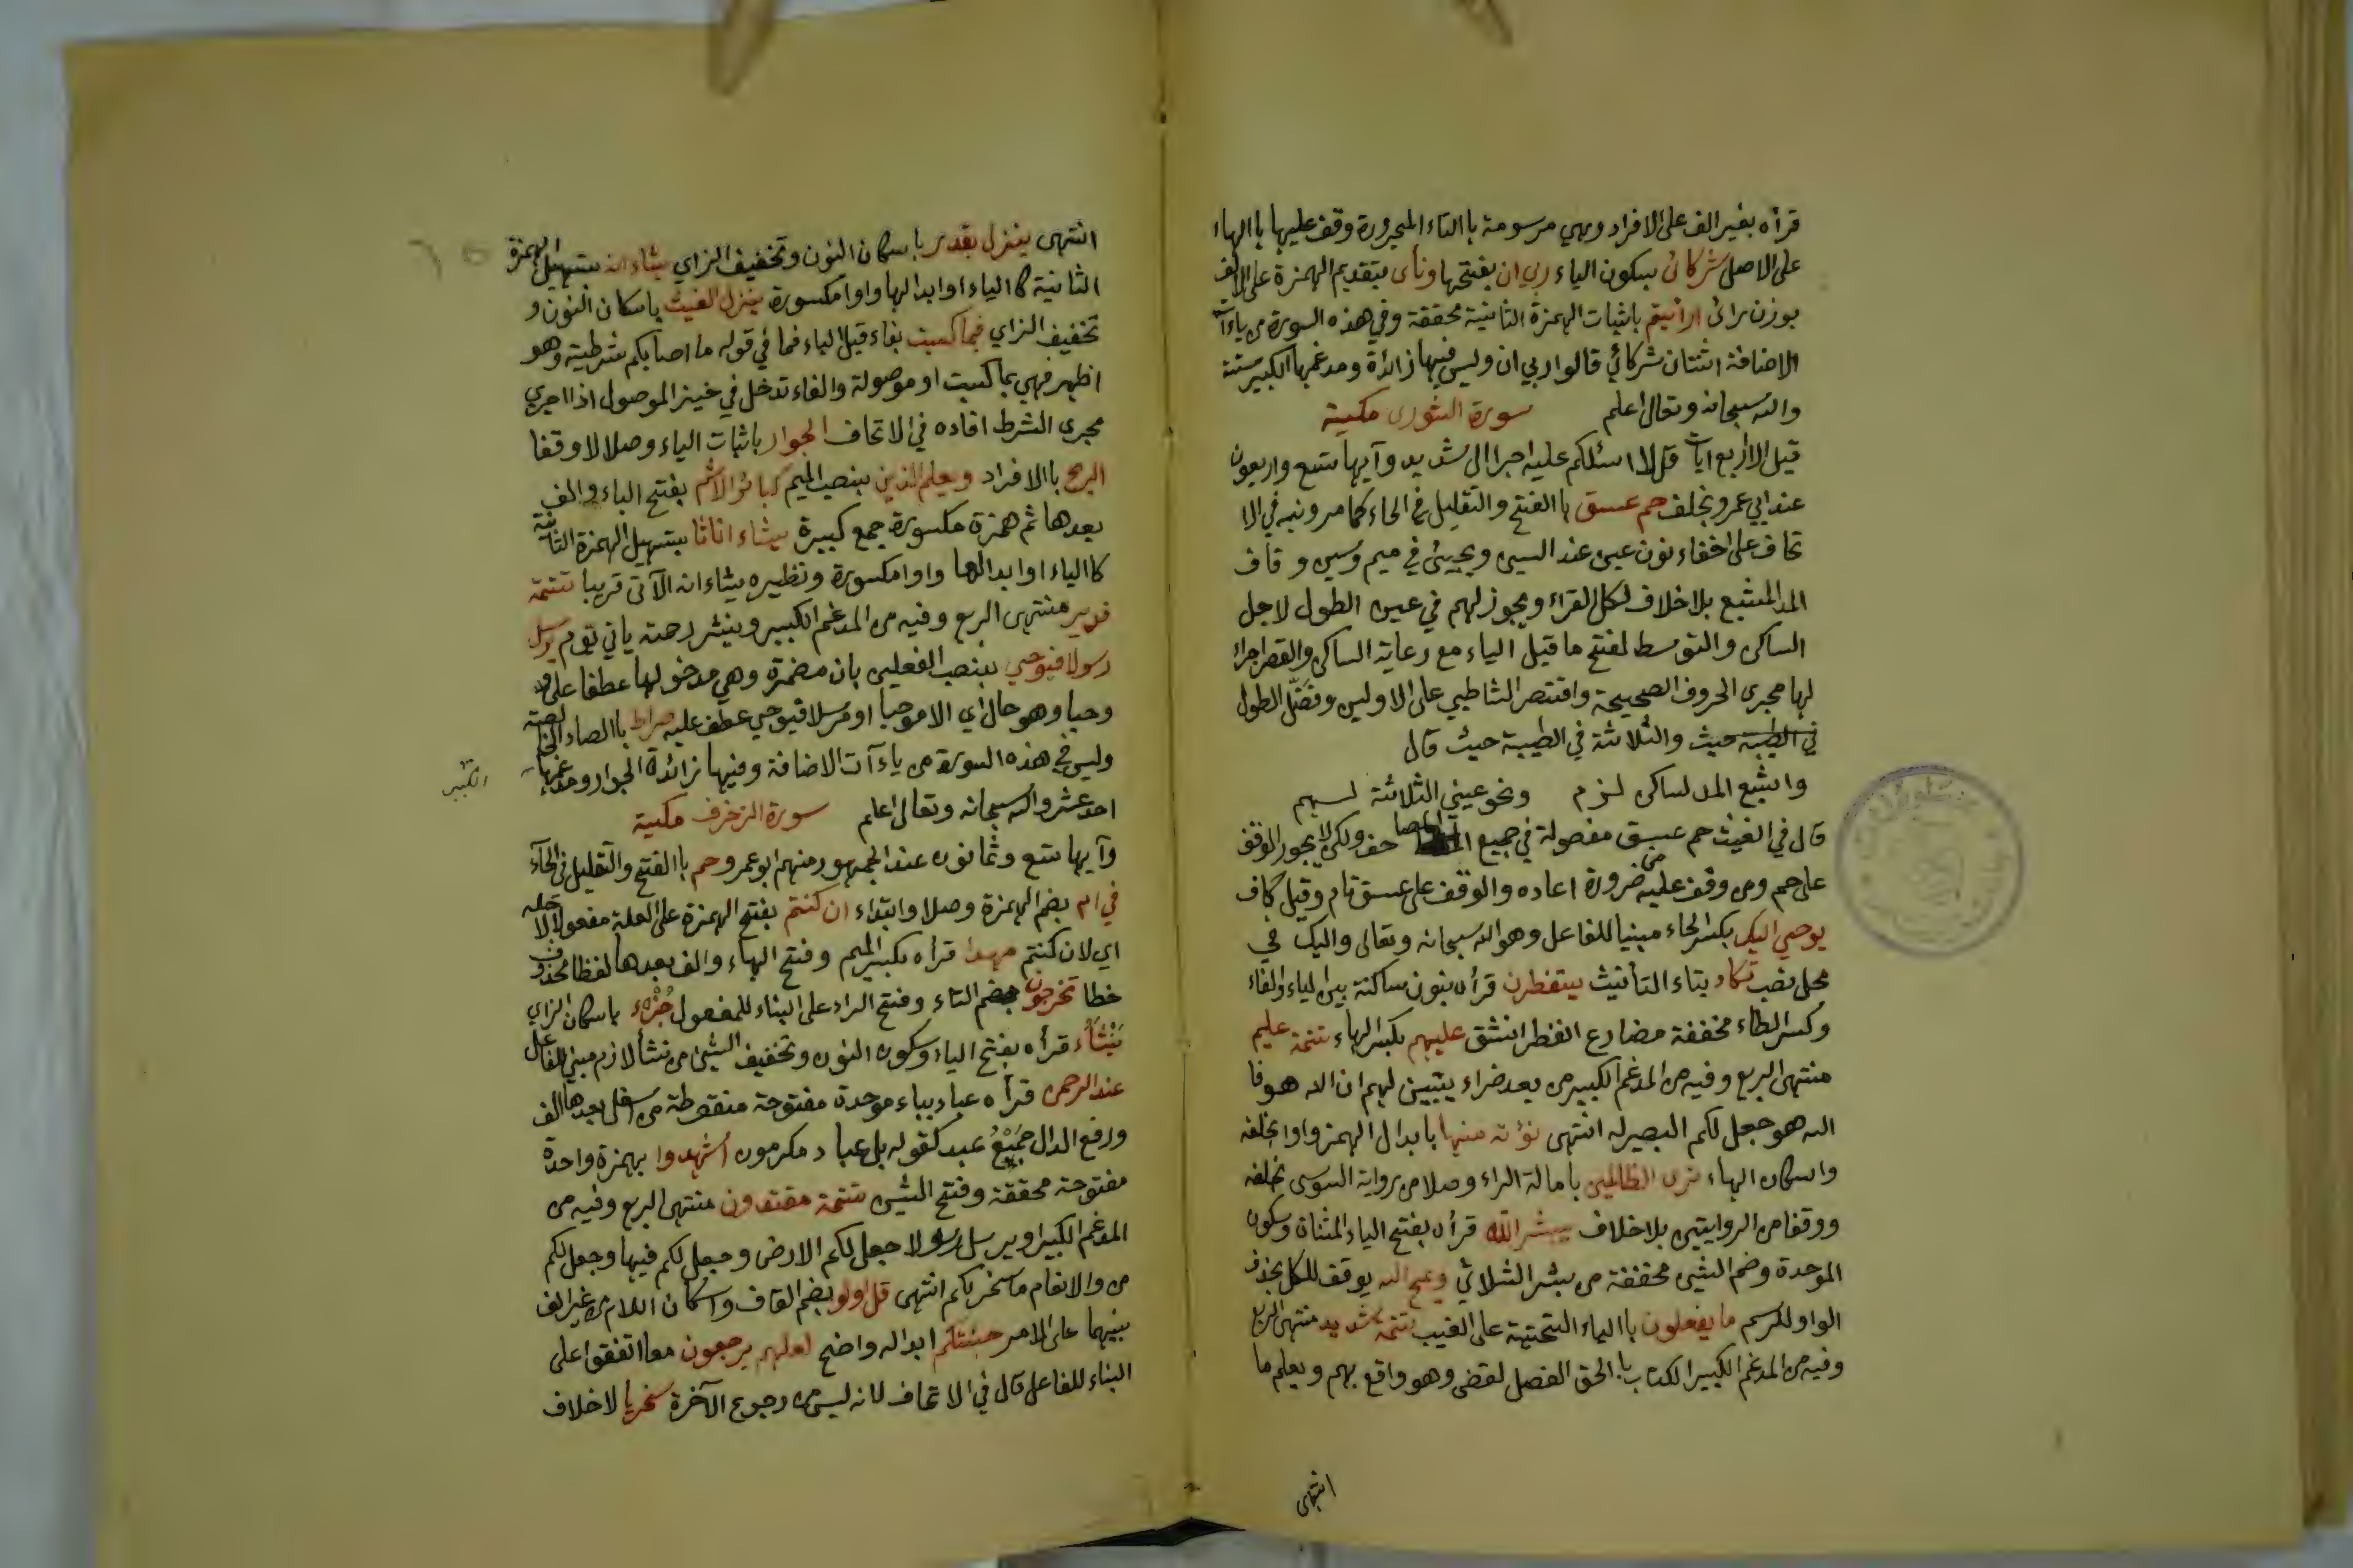 قرأه بغير الف على الافراد وهي مرسومة باالتاء المجرورة وقف عليها باالهاء
على الاصل شركائ بسكون الياء ربي ان بفتحها ونأى بتقديم الهمزة على الالف
بوزن رائ ارائيتم باثبات الهمزة الثانية محققة وفي هذه السورة من ياءآت
الاضافة اثنتان شركائي قالوا ربي ان وليس فيها زائدة ومدغمها الكبير ستة
والله سبحانه وتعالى اعلم سورة الشورى مكية
قيل الا اربع ايات قل لا اسئلكم عليه اجرا الى شديد وآيها تسع واربعون
عند ابي عمرو بخلف حم عسق باالفتح والتقليل في الحاء كما مر ونبه في الا
تحاف على اخفاء نون عين عند السين ويجيئ في ميم وسين و قاف
المد المشبع بلا خلاف لكل القراء ويجوز لهم في عين الطول لاجل
الساكن والتوسط لفتح ما قبل الياء مع رعاية الساكن والقصر اجراء
لها مجرى الحروف الصحيحة واقتصر الشاطبي على الاولين وفضّل الطول
في الطيبة حيث والثلاثة في الطيبة حيث قال
واشبع المد لساكن لزم ونحو عين الثلاثة لهم
قال في الغيث حم عسق مفصولة في جميع المصاحف ولكن لا يجوز الوقف
على حم ومن وقف عليه من ضرورة اعاده والوقف على عسق تام وقيل كاف
يوحي اليك بكسر الحاء مبنيا للفاعل وهو الله سبحانه وتعالى واليك في
محل نصب تكاد بتاء التأنيث ينفطرن قرأه بنون ساكنة بين الياء والفاء
وكسر الطاء مخففة مضارع انفطر انشق عليهم بكسر الهاء تتمة عليم
منتهى الربع وفيه من المدغم الكبير من بعد ضراء يتبين لهم ان الله هو فا
الله هو جعل لكم البصير له انتهى نؤته منها بابدال الهمز واوا بخلفه
واسكان الهاء ترى الظالمين بامالة الراء وصلا من رواية السوسي بخلفه
ووقفا من الروايتين بلا خلاف يبشر الله قرأه بفتح الياء المثناة وسكون
الموحدة وضم الشين مخففة من بشر الثلاثي ويمح الله يوقف للكل بحذف
الواو للرسم ما يفعلون باالياء التحتية على الغيب تتمة شديد منتهى الربع
وفيه من المدغم الكبير الكتاب باالحق الفصل لقضى وهو واقع بهم ويعلم ما
انتهى
انتهى ينزل بقدر باسكان النون وتخفيف الزاي يشاء انه بتسهيل الهمزة
الثانية كاالياء او ابدالها واوا مكسورة ينزل الغيث باسكان النون و
تخفيف الزاي فبما كسبت بفاء قبل الباء فما في قوله ما اصابكم شرطية وهو
اظهر فهي بما كسبت او موصولة والفاء تدخل في خبر الموصول اذا اجري
مجرى الشرط افاده في الاتحاف الجوار باثبات الياء وصلا لا وقفا
الريح باالافراد ويعلم الذين بنصب الميم كبائر الاثم بفتح الباء والف
بعدها ثم همزة مكسورة جمع كبيرة يشاء اناثا بتسهيل الهمزة الثانية
كاالياء او ابدالها واوا مكسورة ونظيره يشاء انه الآتي قريبا تتمة
قدير منتهى الربع وفيه من المدغم الكبير وينشر رحمته ياتي يوم يرسل
رسولا فيوحي بنصب الفعلين بان مضمرة وهي مدخولها عطفا على
وحيا وهو حال اي الا موحيا او مرسلا فيوحي عطف عليه صراط باالصاد الخالصة
وليس في هذه السورة من ياءآت الاضافة وفيها زائدة الجوار ومدغمها
الكبير
احد عشر والله سبحانه وتعالى اعلم سورة الزخرف مكية
وآيها تسع وثمانون عند الجمهور ومنهم ابو عمرو حم باالفتح والتقليل في الحاء
في ام بضم الهمزة وصلا وابتداء ان كنتم بفتح الهمزة على العلة مفعولا لاجله
اي لان كنتم مهدا قرأه بكسر الميم وفتح الهاء والف بعدها لفظا محذوف
خطا تخرجون بضم التاء وفتح الراء على البناء للمفعول جُزْء باسكان الزاي
يَنْشَأُ قرأه بفتح الياء وسكون النون وتخفيف الشين من نشأ لازم مبني للفاعل
عند الرحمن قرأه عباد بباء موحدة مفتوحة منقوطة من اسفل بعدها الف
ورفع الدال جمع عبد كقوله بل عباد مكرمون أشهدوا بهمزة واحدة
مفتوحة محققة وفتح الشين تتمة مقتدون منتهى الربع وفيه من
المدغم الكبير او يرسل رسولا جعل لكم الارض وجعل لكم فيها وجعل لكم
من والانعام ما سخر لكم انتهى قل اولو بضم القاف واسكان اللام من غير الف
بينهما على الامر جئتكم ابداله واضح لعلهم يرجعون معا اتفقوا على
البناء للفاعل قال في الاتحاف لانه ليس من رجوع الآخرة سخريا لا خلاف